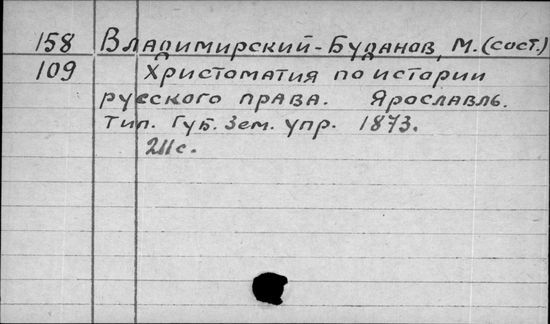 158 Владимирский-Буданов, М. (сост.)
109 Христоматия по истории
русского права. Ярославль.
Тип. Губ. Зем. упр. 1873.
211 с.